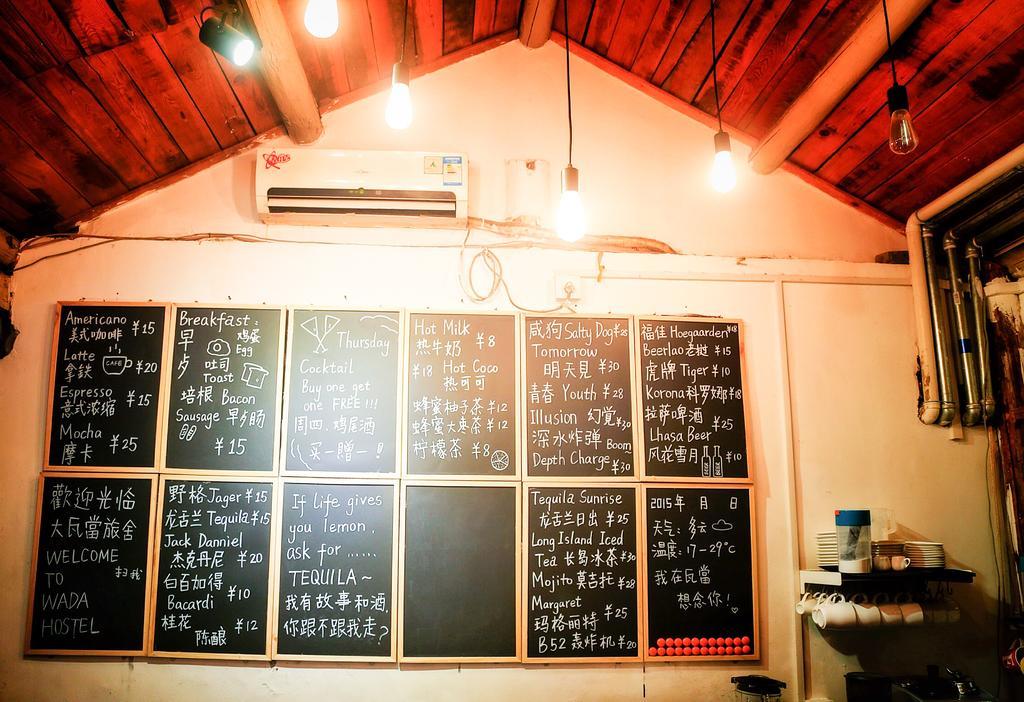 Americano ¥15
美式咖啡
Latte
拿铁 CAFE ¥20
Espresso
意式浓缩 ¥15
Mocha
摩卡 ¥25
Breakfast:
早 鸡蛋
Egg
夕 吐司
Toast
培根 Bacon
Sausage 早夕肠
¥15
Thursday
Cocktail
Buy one get
one FREE!!!
周四.鸡尾酒
买一赠一!
Hot Milk
热牛奶 ¥8
¥18 Hot Coco
热可可
蜂蜜柚子茶 ¥12
蜂蜜大枣茶 ¥12
柠檬茶 ¥8
咸狗 Salty Dog ¥28
Tomorrow
明天見 ¥30
青春 Youth ¥28
Illusion 幻覚 ¥30
深水炸彈 Boom
Depth Charge ¥30
福佳 Hoegaarden ¥18
Beerlao 老挝 ¥15
虎牌 Tiger ¥10
Korona 科罗娜 ¥18
拉萨啤酒 ¥25
Lhasa Beer
风花雪月 ¥10
歡迎光临
大瓦當旅舍
WELCOME 扫我
TO
WADA
HOSTEL
野格 Jager ¥15
龙舌兰 Tequila ¥15
Jack Danniel
杰克丹尼 ¥20
白百加得
Bacardi ¥10
桂花
陈酿 ¥12
If life gives
you lemon,
ask for ......
TEQUILA~
我有故事和酒.
你跟不跟我走?
Tequila Sunrise
龙舌兰日出 ¥25
Long Island Iced
Tea 长岛冰茶 ¥30
Mojito 莫吉托 ¥28
Margaret
玛格丽特 ¥25
B52 轰炸机 ¥20
2015年 月 日
天气: 多云
温度: 17-29°C
我在瓦當
想念你!